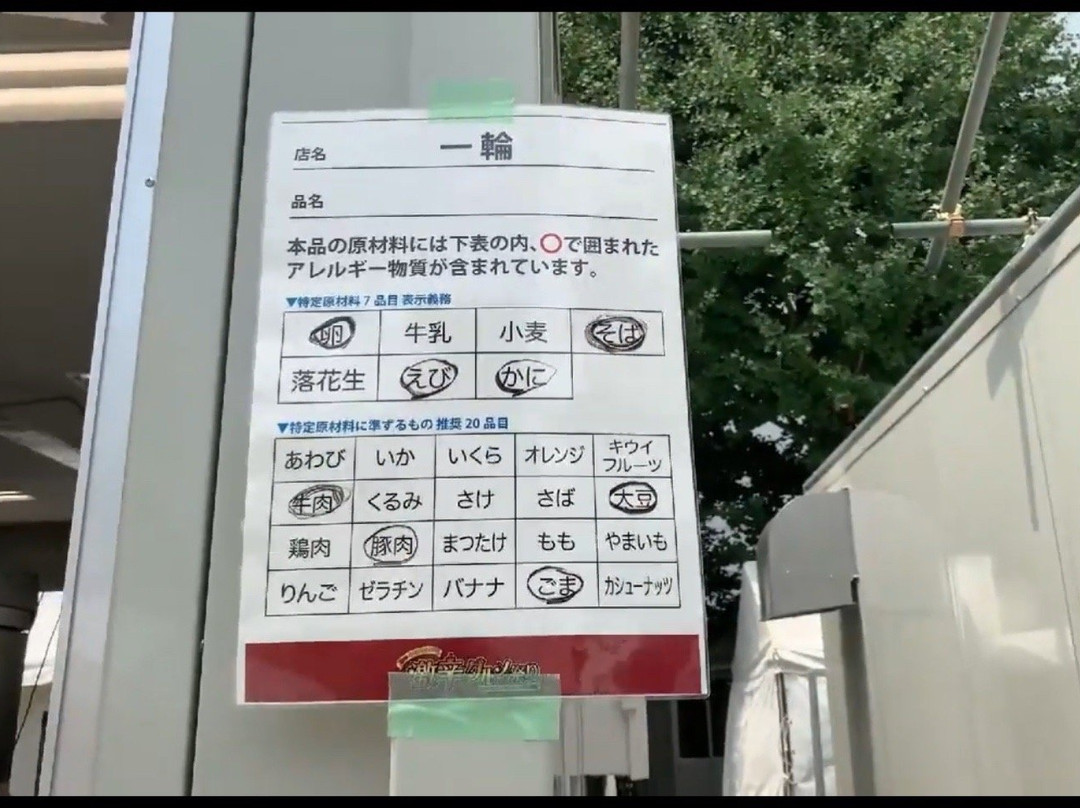 店名 一輪
品名
本品の原材料には下表の内、〇で囲まれた
アレルギー物質が含まれています。
▼特定原材料7品目 表示義務
卵 牛乳 小麦 そば
落花生 えび かに
▼特定原材料に準ずるもの 推奨20品目
あわび いか いくら オレンジ キウイ
フルーツ
牛肉 くるみ さけ さば 大豆
鶏肉 豚肉 まつたけ もも やまいも
りんご ゼラチン バナナ ごま カシューナッツ
激辛グルメ祭り